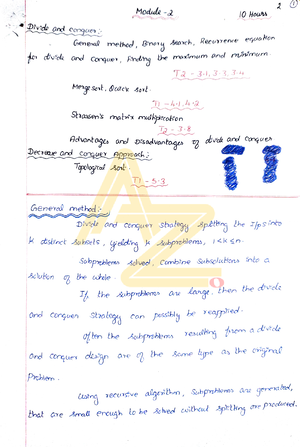 2 1
Module-2 10 Hours
Divide and conquer:
General method, Binary search, Recurrence equation
for divide and conquer, Finding the maximum and minimum
T2 - 3.1, 3.3, 3.4
Merge sort, Quick sort
T1 - 4.1, 4.2
Strassen's matrix multiplication
T2 - 3.8
Advantages and Disadvantages of divide and conquer
Decrease and conquer Approach:
Topological sort.
T1 - 5.3
General method:-
Divide and conquer strategy splitting the I/ps into
k distinct subsets, yielding k subproblems, 1<k≤n.
Subproblems solved, combine subsolutions into a
solution of the whole.
If the subproblems are large, then the divide
and conquer strategy can possibly be reapplied.
Often the subproblems resulting from a divide
and conquer design are of the same type as the original
Problem.
Using recursive algorithm, subproblems are generated,
that are small enough to be solved without splitting are produced.